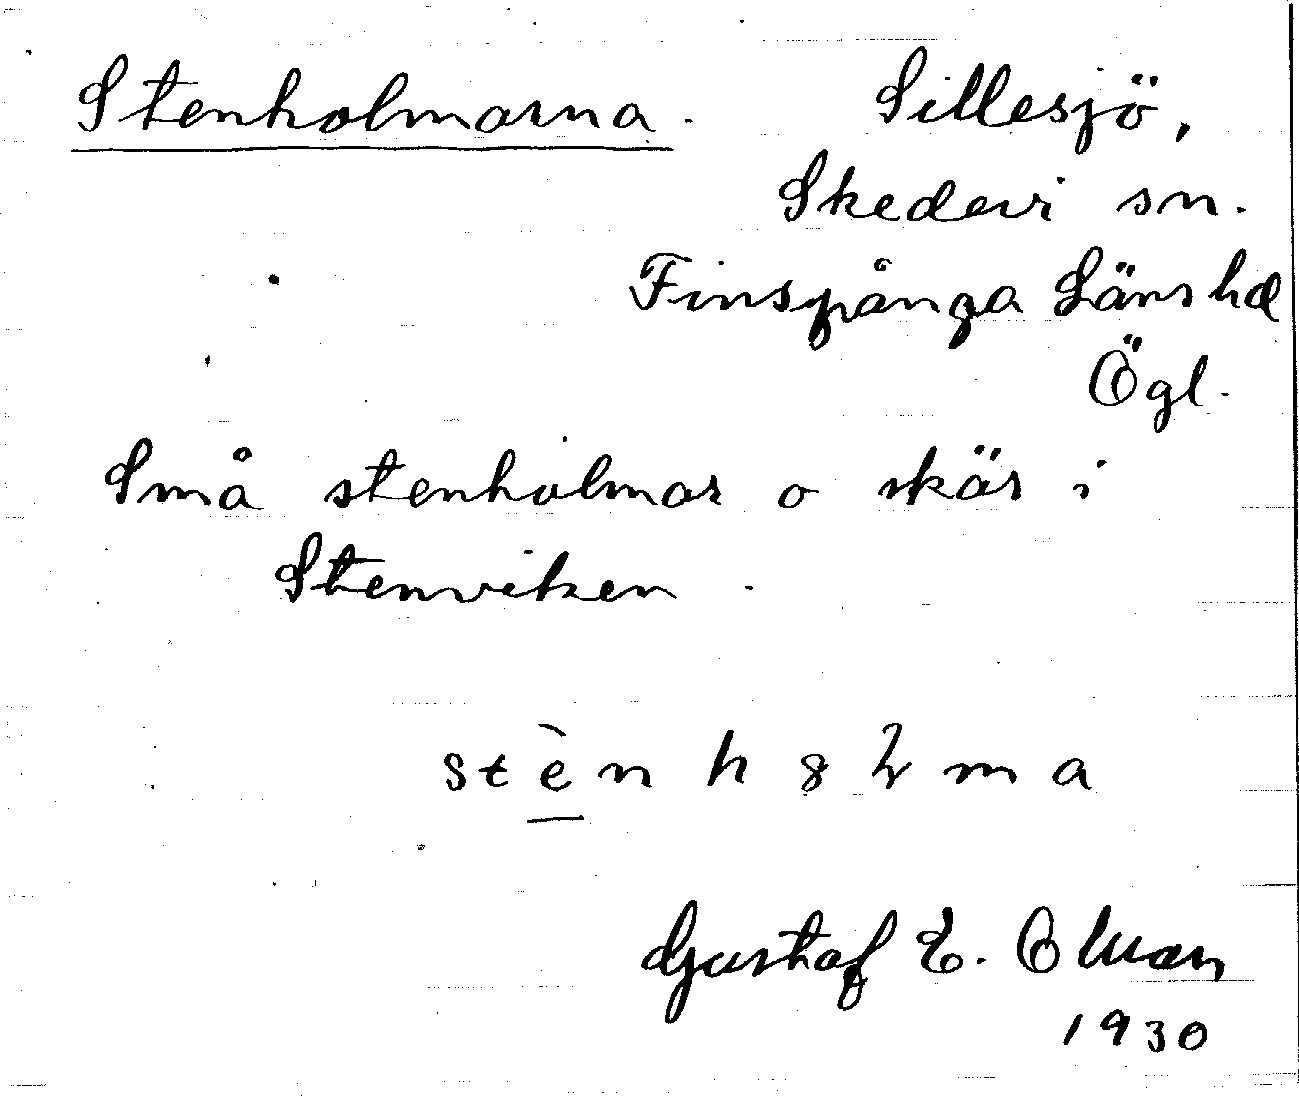 Stenholmarna. Sillesjö,
Skedevi sn.
Finspånga Länshd
Ögl.
Små stenholmar o skär i
Stenviken.
stè̱n h
Gustaf E.
1930